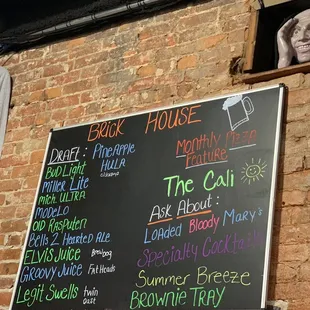 BRICK HOUSE
DRAFT: PINEAPPLE
HULA
BUD LIGHT
Miller Lite
Mich ULTRA
MODELO
OLD RASPUTEN
Bells 2 Hearted Ale
ELVIS JUICE
GROOVY JUICE Fat Heads
Legit Swells twin
oast
Monthly Pizza
Feature
The Cali
ASK About:
LOADED Bloody Mary's
Specialty Cocktails
Summer Breeze
BROWNIE TRAY